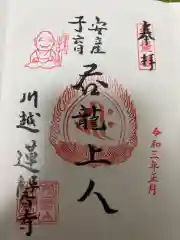 奉拝
令和三年正月
安産
子育
呑龍上人
川越 蓮馨寺